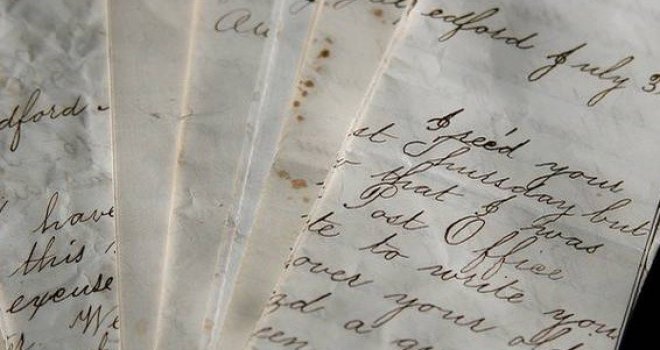 dford.
have
this
excuse
We
Au
edford July 3
I rec'd your
st Thursday but
that I was
Post Office
te to write you
over your
a
een